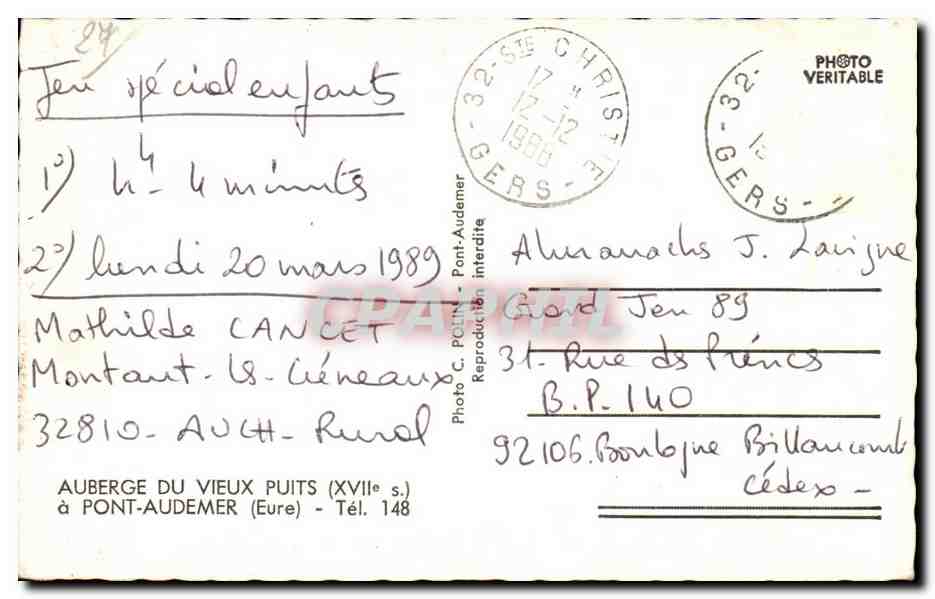 27
Jeu spécial enfants
1°) 4h 4 minutes
2°) lundi 20 mars 1989
Mathilde CANCET
Montaut-les-Créneaux
32810 - AUCH - Rural
AUBERGE DU VIEUX PUITS (XVIIe s.)
à PONT-AUDEMER (Eure) - Tél. 148
Photo C. POLIN - Pont-Audemer
Reproduction interdite
CPAPHIL
32-STE CHRISTIE
17 H
12-12
1988
GERS
32-
GERS
PHOTO
VERITABLE
Almanachs J. Lavigne
Grand Jeu 89
31- Rue des
B.P. 140
92106. Boulogne Billancourt
Cédex -